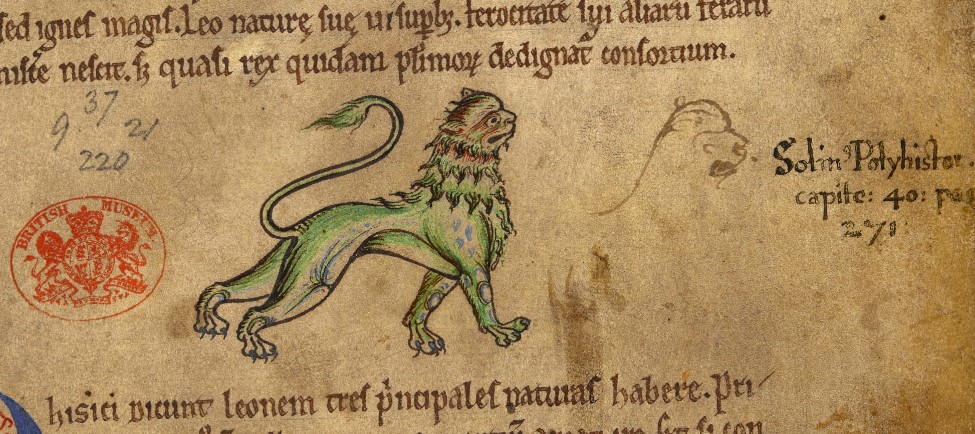 sed ignes magis. Leo naturę suę ui supbꝫ. ferocitate sui aliarū ferarū
nescit. sꝫ quasi rex quidam plimoꝝ dedignat̄ consortium.
37
9 21
220
BRITISH MUSEUM
Solin' Polyhistor
capite: 40: pa
271
hisici dicunt leonem tres p̄ncipales naturas habere. Pri